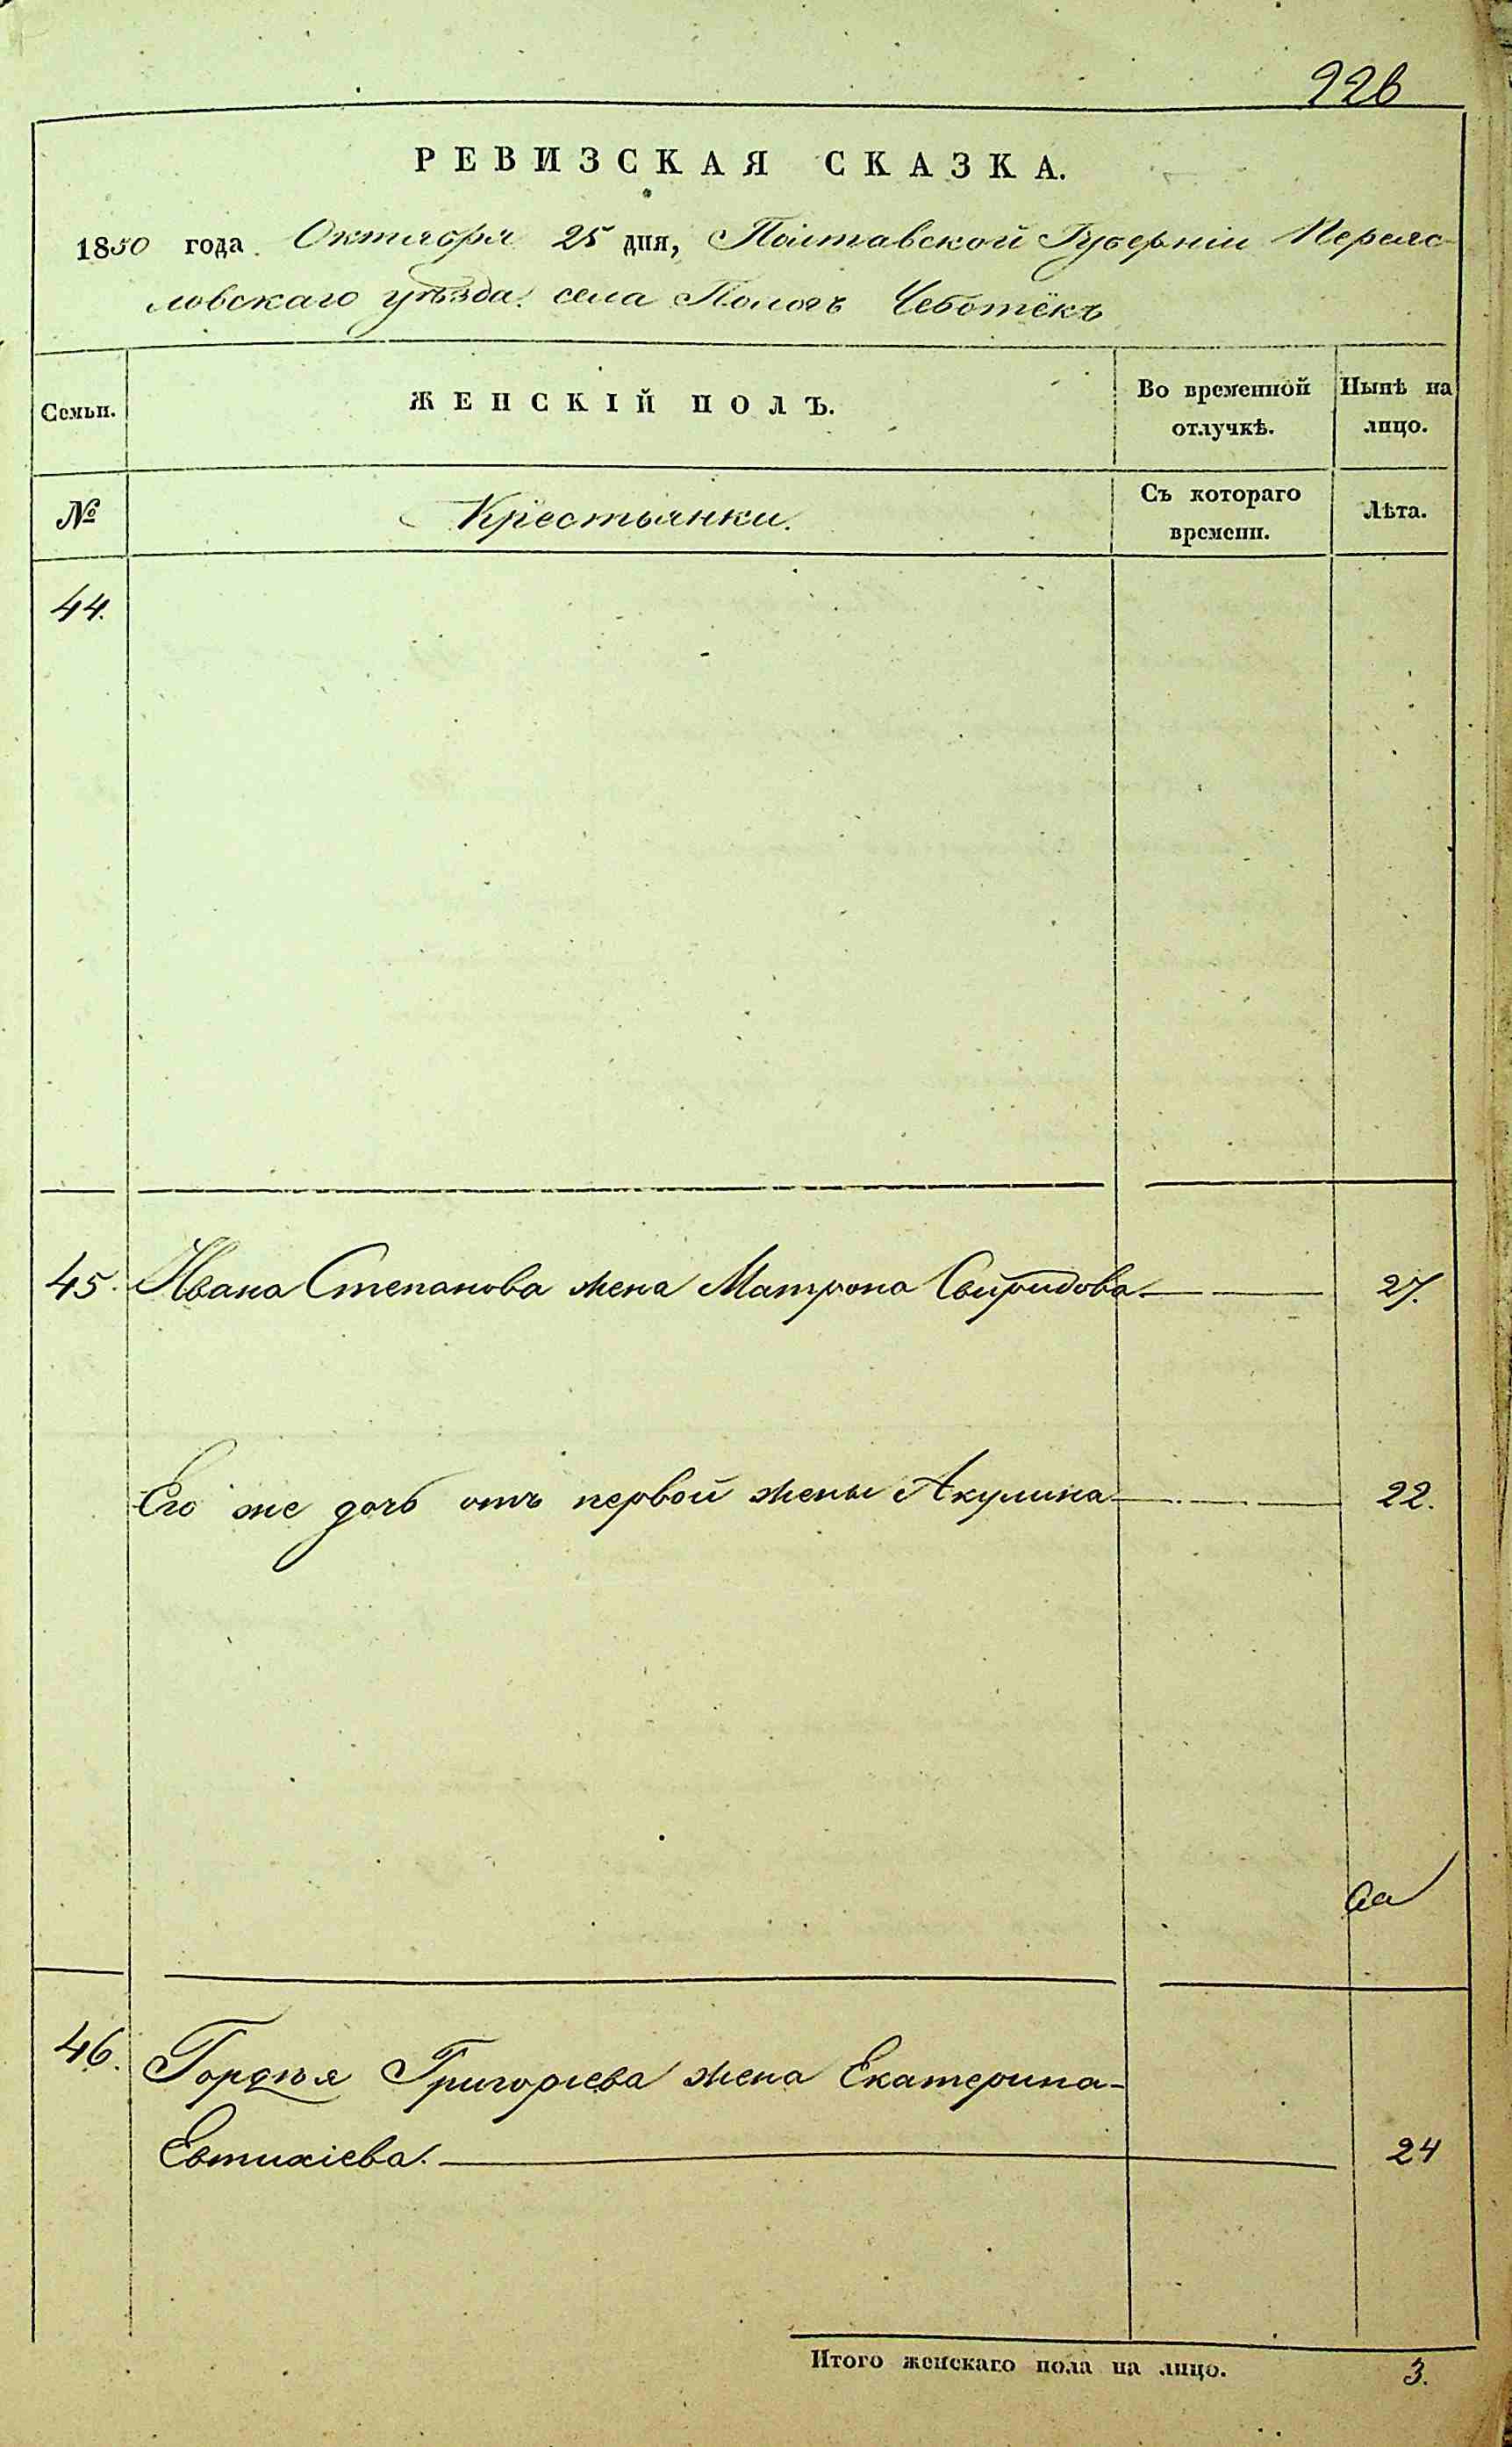 226
РЕВИЗСКАЯ СКАЗКА.
1850 года Октября 25 дня, Полтавской Губерніи Переяс-
ловскаго уѣзда села Пологъ Чеботёкъ
Семьи. ЖЕНСКІЙ ПОЛЪ. Во временной отлучкѣ. Нынѣ на лицо.
№ Крестьянки. Съ котораго времени. Лѣта.
44.
45. Ивана Степанова жена Матрона Свиридова 27.
Его же дочь отъ первой жены Акулина 22.
46. Гордѣя Григорьева жена Екатерина
Евтихіева. 24
Итого женскаго пола на лицо. 3.